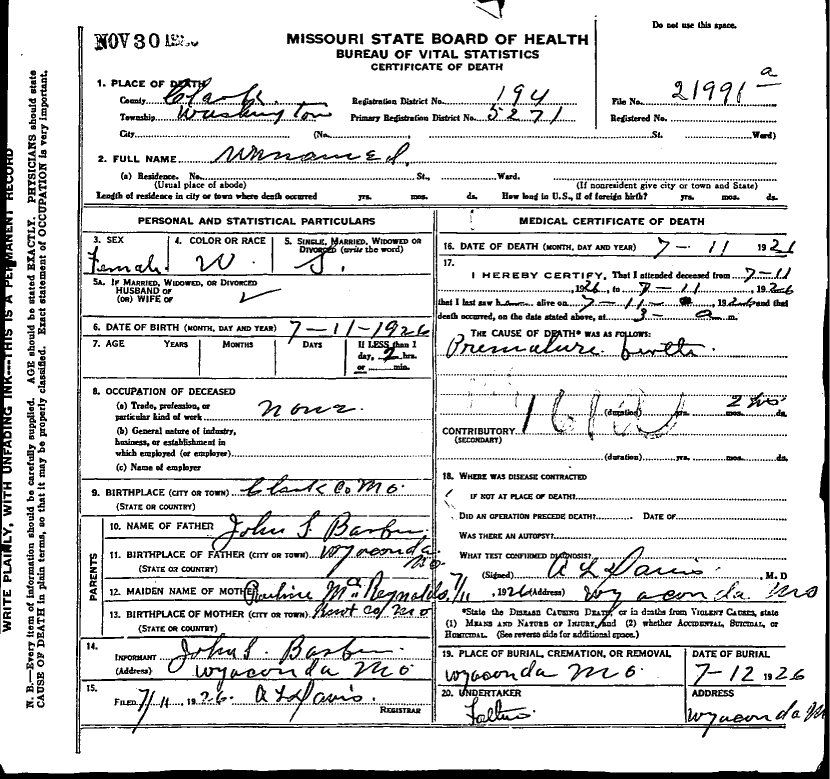 NOV 30 1926
Do not use this space.
MISSOURI STATE BOARD OF HEALTH
BUREAU OF VITAL STATISTICS
CERTIFICATE OF DEATH
1. PLACE OF DEATH
County Clark Registration District No. 194 File No. 21991 a
Township Washington Primary Registration District No. 5271 Registered No.
City (No. , St. Ward)
2. FULL NAME Unnamed.
(a) Residence. No. St., Ward.
(Usual place of abode) (If nonresident give city or town and State)
Length of residence in city or town where death occurred yrs. mos. ds. How long in U.S., if of foreign birth? yrs. mos. ds.
PERSONAL AND STATISTICAL PARTICULARS
3. SEX Female 4. COLOR OR RACE W. 5. SINGLE, MARRIED, WIDOWED OR DIVORCED (write the word) S.
5A. IF MARRIED, WIDOWED, OR DIVORCED
HUSBAND OF
(OR) WIFE OF
6. DATE OF BIRTH (MONTH, DAY AND YEAR) 7-11-1926
7. AGE YEARS MONTHS DAYS If LESS than 1 day, 2 hrs. or min.
8. OCCUPATION OF DECEASED
(a) Trade, profession, or particular kind of work none
(b) General nature of industry, business, or establishment in which employed (or employer)
(c) Name of employer
9. BIRTHPLACE (CITY OR TOWN) Clark Co Mo.
(STATE OR COUNTRY)
PARENTS
10. NAME OF FATHER John S. Barber
11. BIRTHPLACE OF FATHER (CITY OR TOWN) Wyaconda Mo
(STATE OR COUNTRY)
12. MAIDEN NAME OF MOTHER Pauline McReynolds
13. BIRTHPLACE OF MOTHER (CITY OR TOWN) Knox Co Mo
(STATE OR COUNTRY)
14.
INFORMANT John S. Barber
(Address) Wyaconda Mo
15.
FILED 7/11, 1926. A L Davis.
REGISTRAR
MEDICAL CERTIFICATE OF DEATH
16. DATE OF DEATH (MONTH, DAY AND YEAR) 7-11 1926
17.
I HEREBY CERTIFY, That I attended deceased from 7-11
, 1926, to 7-11, 1926
that I last saw h alive on 7-11, 1926 and that
death occurred, on the date stated above, at 3- a m.
THE CAUSE OF DEATH* WAS AS FOLLOWS:
Premature birth.
161a
(duration) yrs. mos. ds. 2 hrs
CONTRIBUTORY
(SECONDARY)
(duration) yrs. mos. ds.
18. WHERE WAS DISEASE CONTRACTED
IF NOT AT PLACE OF DEATH?
DID AN OPERATION PRECEDE DEATH? DATE OF
WAS THERE AN AUTOPSY?
WHAT TEST CONFIRMED DIAGNOSIS?
(Signed) A L Davis, M. D
7/11, 1926 (Address) Wyaconda Mo
*State the DISEASE CAUSING DEATH, or in deaths from VIOLENT CAUSES, state
(1) MEANS AND NATURE OF INJURY, and (2) whether ACCIDENTAL, SUICIDAL, or
HOMICIDAL. (See reverse side for additional space.)
19. PLACE OF BURIAL, CREMATION, OR REMOVAL DATE OF BURIAL
Wyaconda Mo. 7-12 1926
20. UNDERTAKER ADDRESS
Wyaconda Mo
WRITE PLAINLY, WITH UNFADING INK---THIS IS A PERMANENT RECORD
N. B.—Every item of information should be carefully supplied. AGE should be stated EXACTLY. PHYSICIANS should state
CAUSE OF DEATH in plain terms, so that it may be properly classified. Exact statement of OCCUPATION is very important.